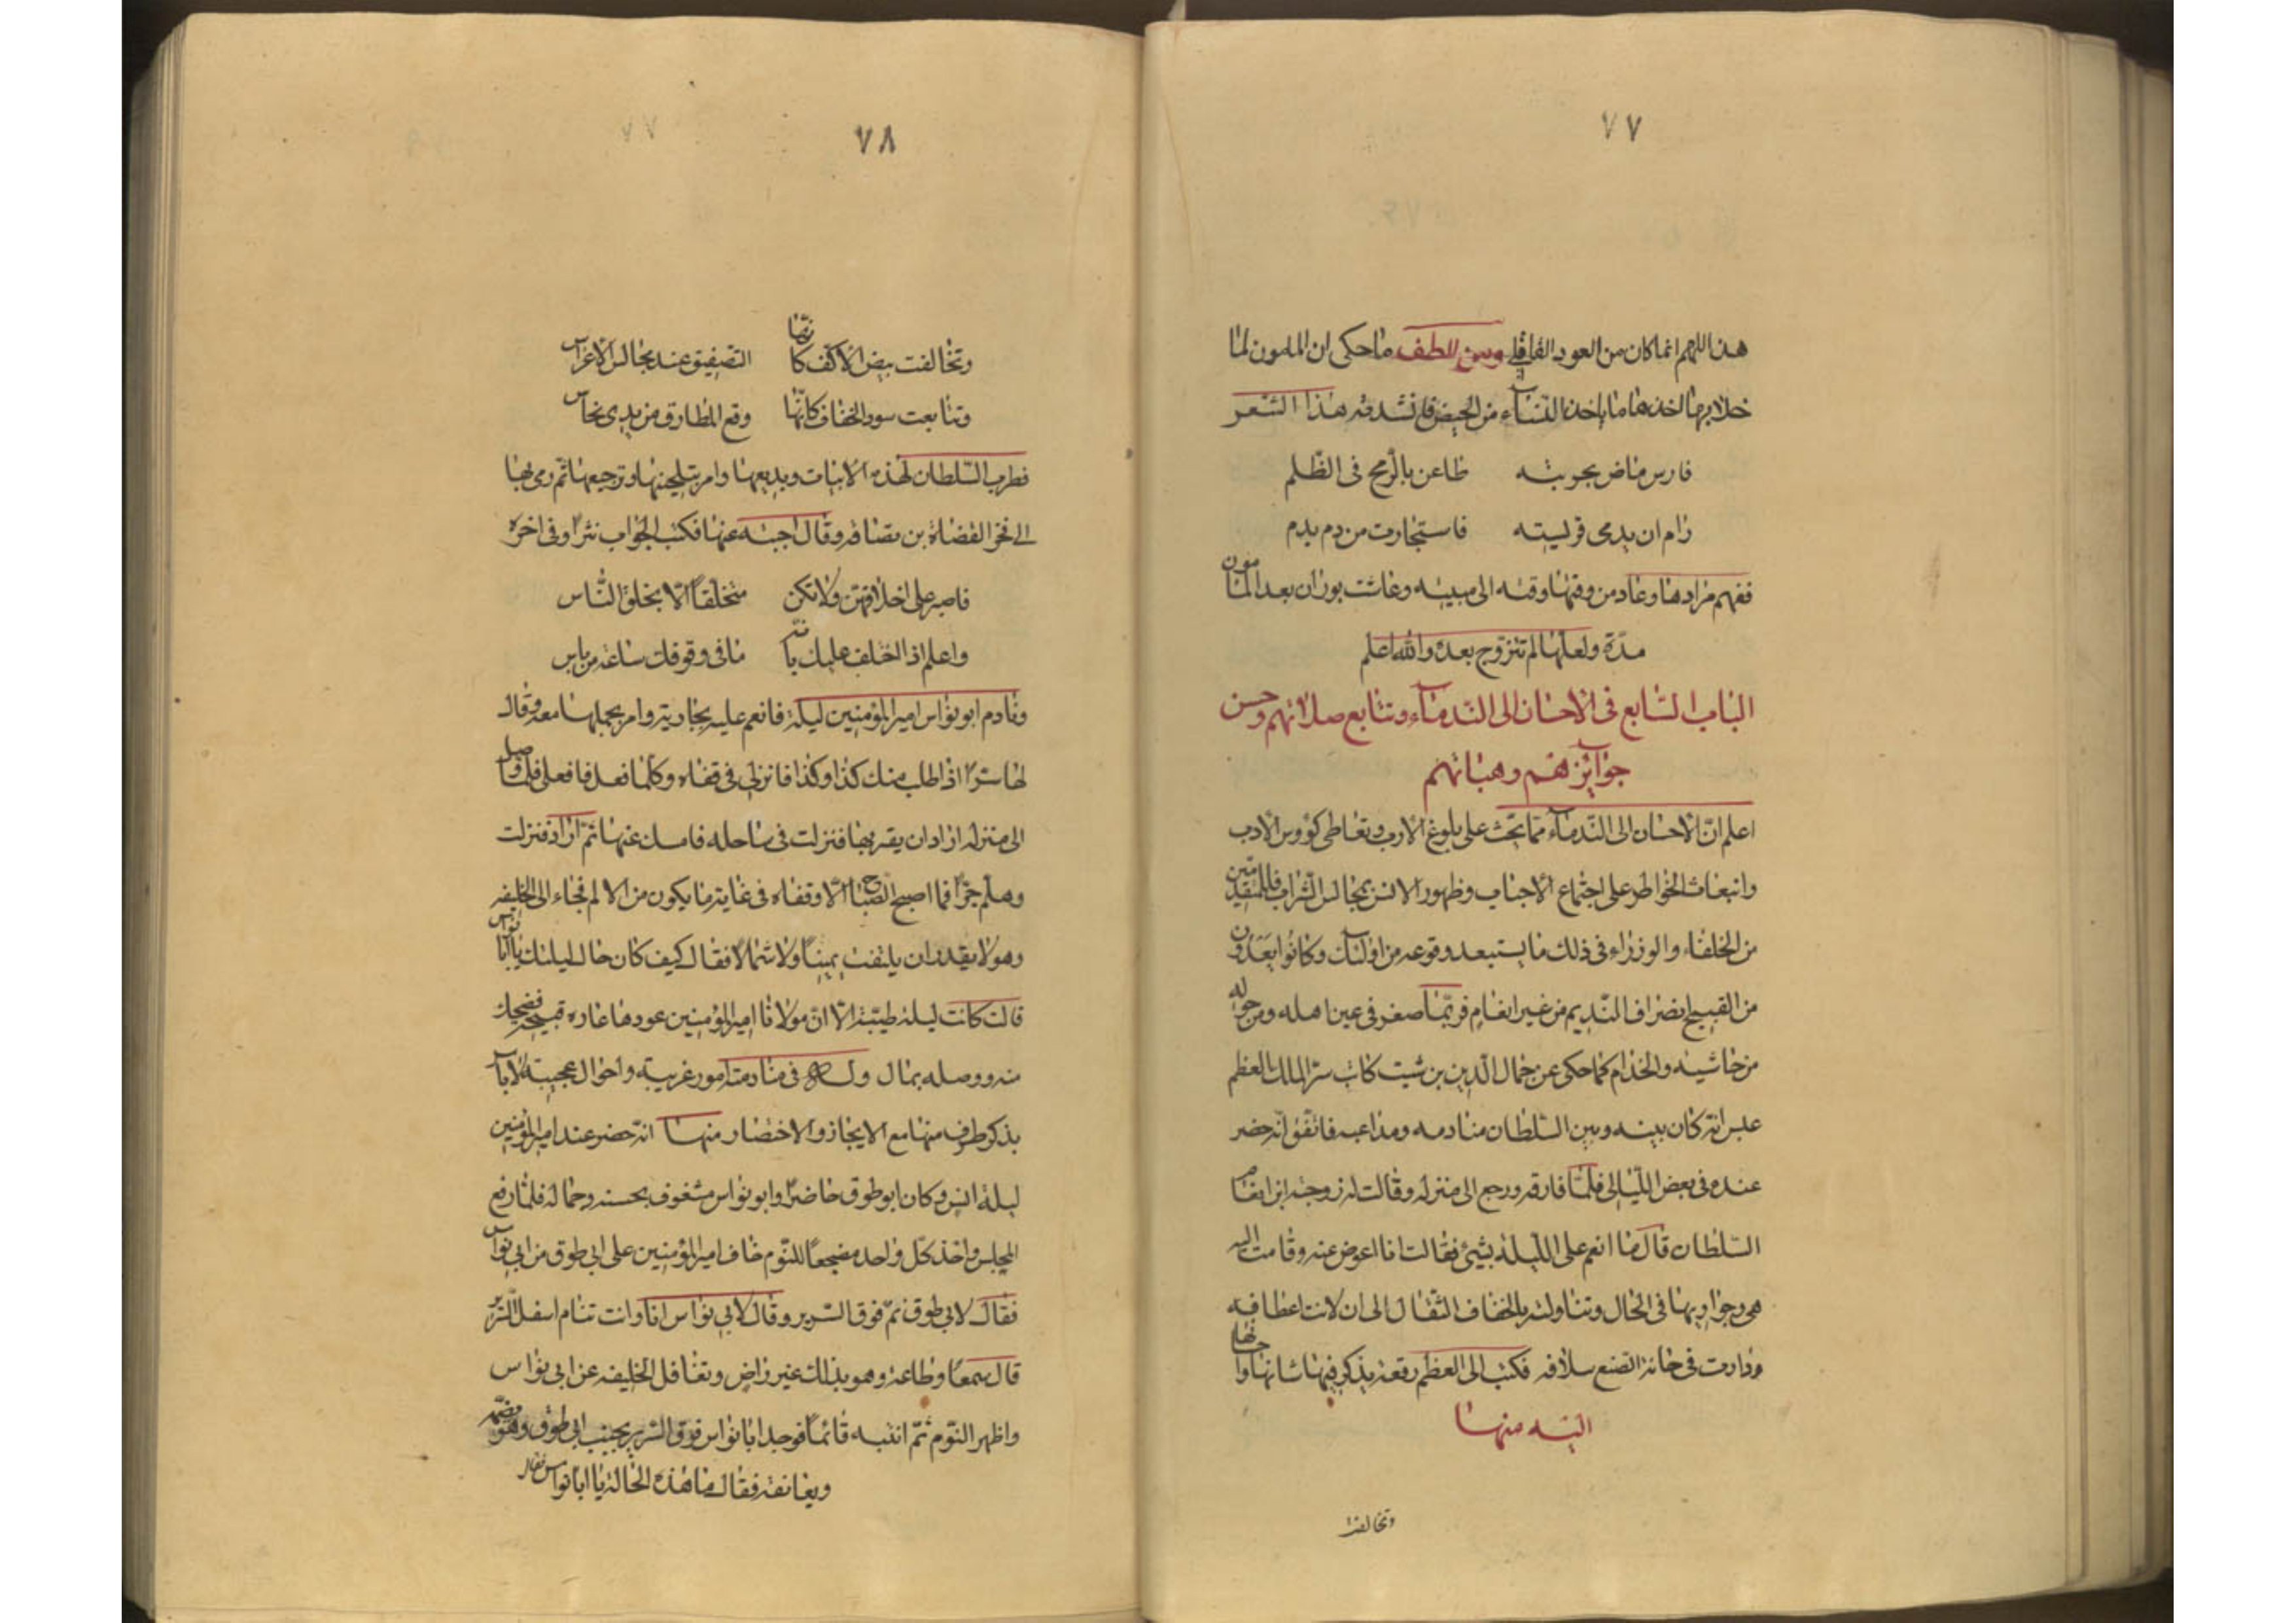 ٧٧
هذا اللهم انما كان من العود القاقلي ومن اللطف ما حكى ان المامون لما
خلا بها اخذها ما ياخذ النساء من الحيض فانشدته هذا الشعر
فارس ماض بحربته طاعن بالرمح فى الظلم
رام ان يدمى فريسته فاستجارت من دم بدم
ففهم مرادها وعاد من وقتها وقته الى مبيته وعاشت بوران بعد المامون
مدة ولعلها لم تتزوج بعده والله اعلم
الباب السابع فى الاحسان الى الندماء وتتابع صلاتهم وحسن
جوايزهم وهباتهم
اعلم ان الاحسان الى الندماء مما يحث على بلوغ الارب وتعاطى كؤوس الادب
وانبعاث الخواطر على اجتماع الاحباب وظهور الانس بمجالس الشراب فللمتقدمين
من الخلفاء والوزراء فى ذلك ما يستبعد وقوعه من اولئك وكانوا يعدون
من القبيح انصراف النديم من غير انعام فربما صغر فى عين اهله ومن حوله
من حاشيته والخدام كما حكى عن جمال الدين بن شيت كاتب سر الملك المعظم
عيس انه كان بينه وبين السلطان منادمه ومداعبه فاتفق انه حضر
عنده فى بعض الليالى فلما فارقه ورجع الى منزله وقالت له زوجته اين انعام
السلطان قال ما انعم على الليلة بشئ فقالت انا اعوض عنه وقامت اليه
هى وجواريها فى الحال وتناولته بالخفاف الثقال الى ان لانت اعطافه
ودارت فى حانة الصفع سلافه فكتب الى المعظم رقعة يذكر فيها شانها واحالها
اليه منها
وتخالفت
٧٨
وتخالفت بيض الاكف كانها التصفيق عند مجالس الاعراس
وتتابعت سود الخفاف كانها وقع المطارق من يدى نحاس
فطرب السلطان لهذه الابيات وبديعها وامر بتلحينها وترجيعها ثم رمى بها
الى فخر القضاة بن بصاقه وقال اجبه عنها فكتب الجواب نثرا وفى اخره
فاصبر على اخلاقهن ولا تكن متخلقا الا بخلق الناس
واعلم اذا اختلفت عليك بانه ما فى وقوفك ساعة من باس
ونادم ابو نواس امير المؤمنين ليلة فانعم عليه بجارية وامر بحملها معه وقال
لها سرا اذا طلب منك كذا وكذا فانزلى فى قفاه وكلما فعل فافعلى فلما وصل
الى منزله اراد ان يقربها فنزلت فى ساحله فامسك عنها ثم اراد فنزلت
وهلم جرا فما اصبح الصباح الا وقفاه فى غاية ما يكون من الالم فجاء الى الخليفه
وهو لا يقدر ان يلتفت يمينا ولا شمالا فقال كيف كان حال ليلتك يا ابا نواس
قالت كانت ليلة طيبة الا ان مولانا امير المؤمنين عودها عاده قبيحه فضحك
منه ووصله بمال وله فى منادمته امور غريبة واحوال عجيبة لا باس
بذكر طرف منها مع الايجاز والاختصار منها انه حضر عند امير المؤمنين
ليلة انس وكان ابو طوق حاضرا وابو نواس مشغوف بحسنه وجماله فلما رفع
المجلس واخذ كل واحد مضجعا للنوم خاف امير المؤمنين على ابى طوق من ابى نواس
فقال لابى طوق نم فوق السرير وقال لابى نواس انا وانت تنام اسفل السرير
قال سمعا وطاعة وهو بذلك غير راض وتغافل الخليفه عن ابى نواس
واظهر النوم ثم انتبه قائما فوجد ابا نواس فوق السرير بجنب ابى طوق وهو يضمه
ويعانقه فقال ما هذه الحالة يا ابا نواس فقال